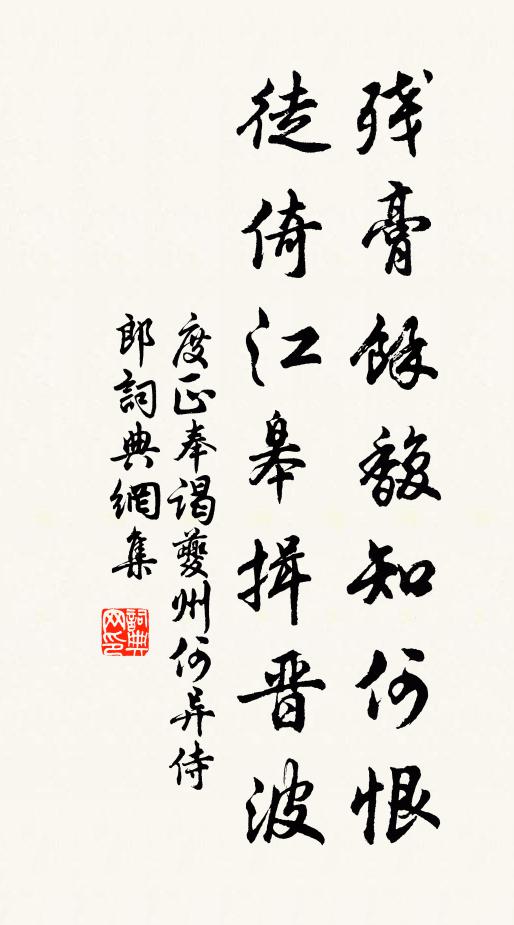 残膏餘馥知何恨
徒倚江皋揖晋波
度正奉谒夔州何异侍
郎詞典網集
詞典
网印